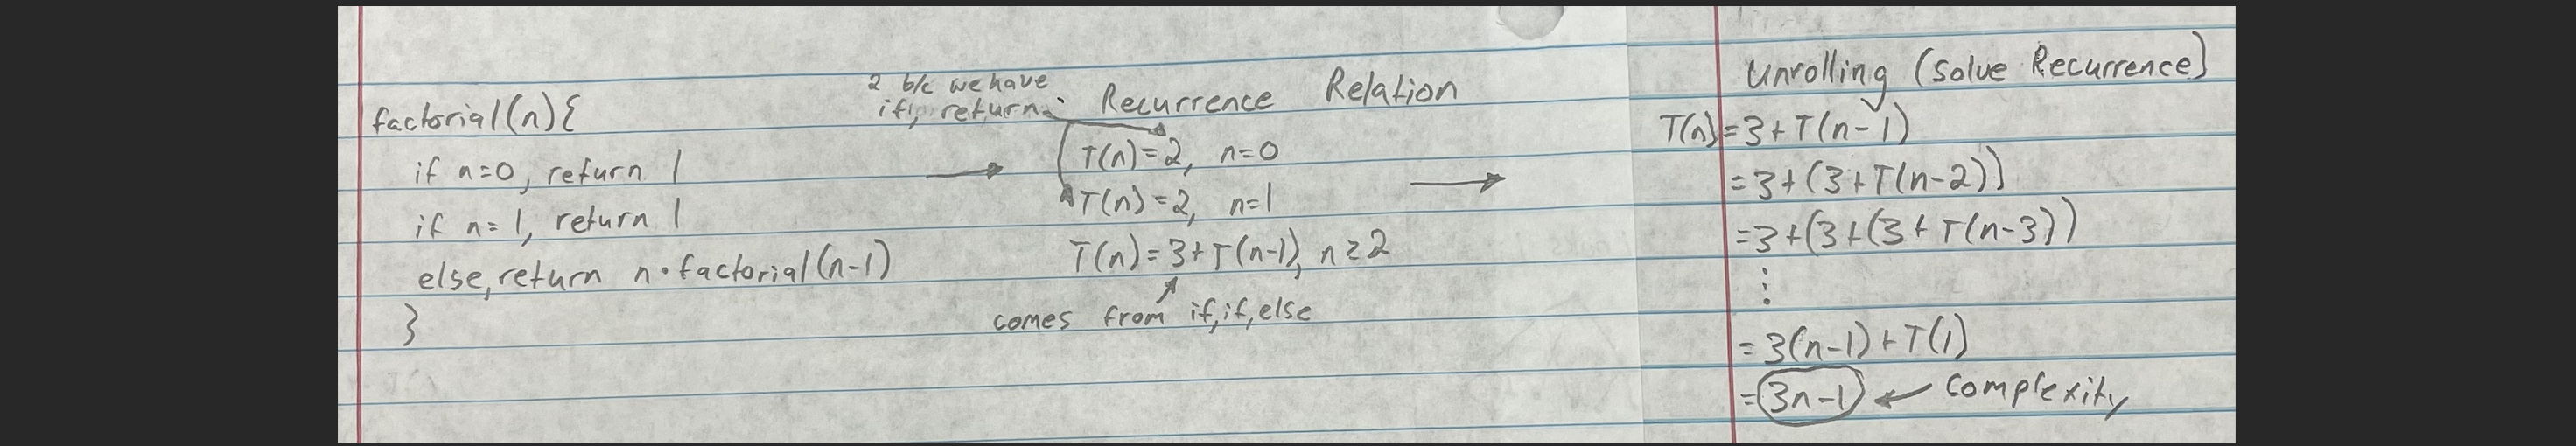 factorial(n){
if n=0, return 1
if n=1, return 1
else, return n·factorial(n-1)
}
2 b/c we have
if, return.
Recurrence Relation
T(n)=2, n=0
T(n)=2, n=1
T(n)=3+T(n-1), n≥2
comes from if,if,else
Unrolling (solve Recurrence)
T(n)=3+T(n-1)
=3+(3+T(n-2))
=3+(3+(3+T(n-3))
⋮
=3(n-1)+T(1)
=3n-1 ← complexity